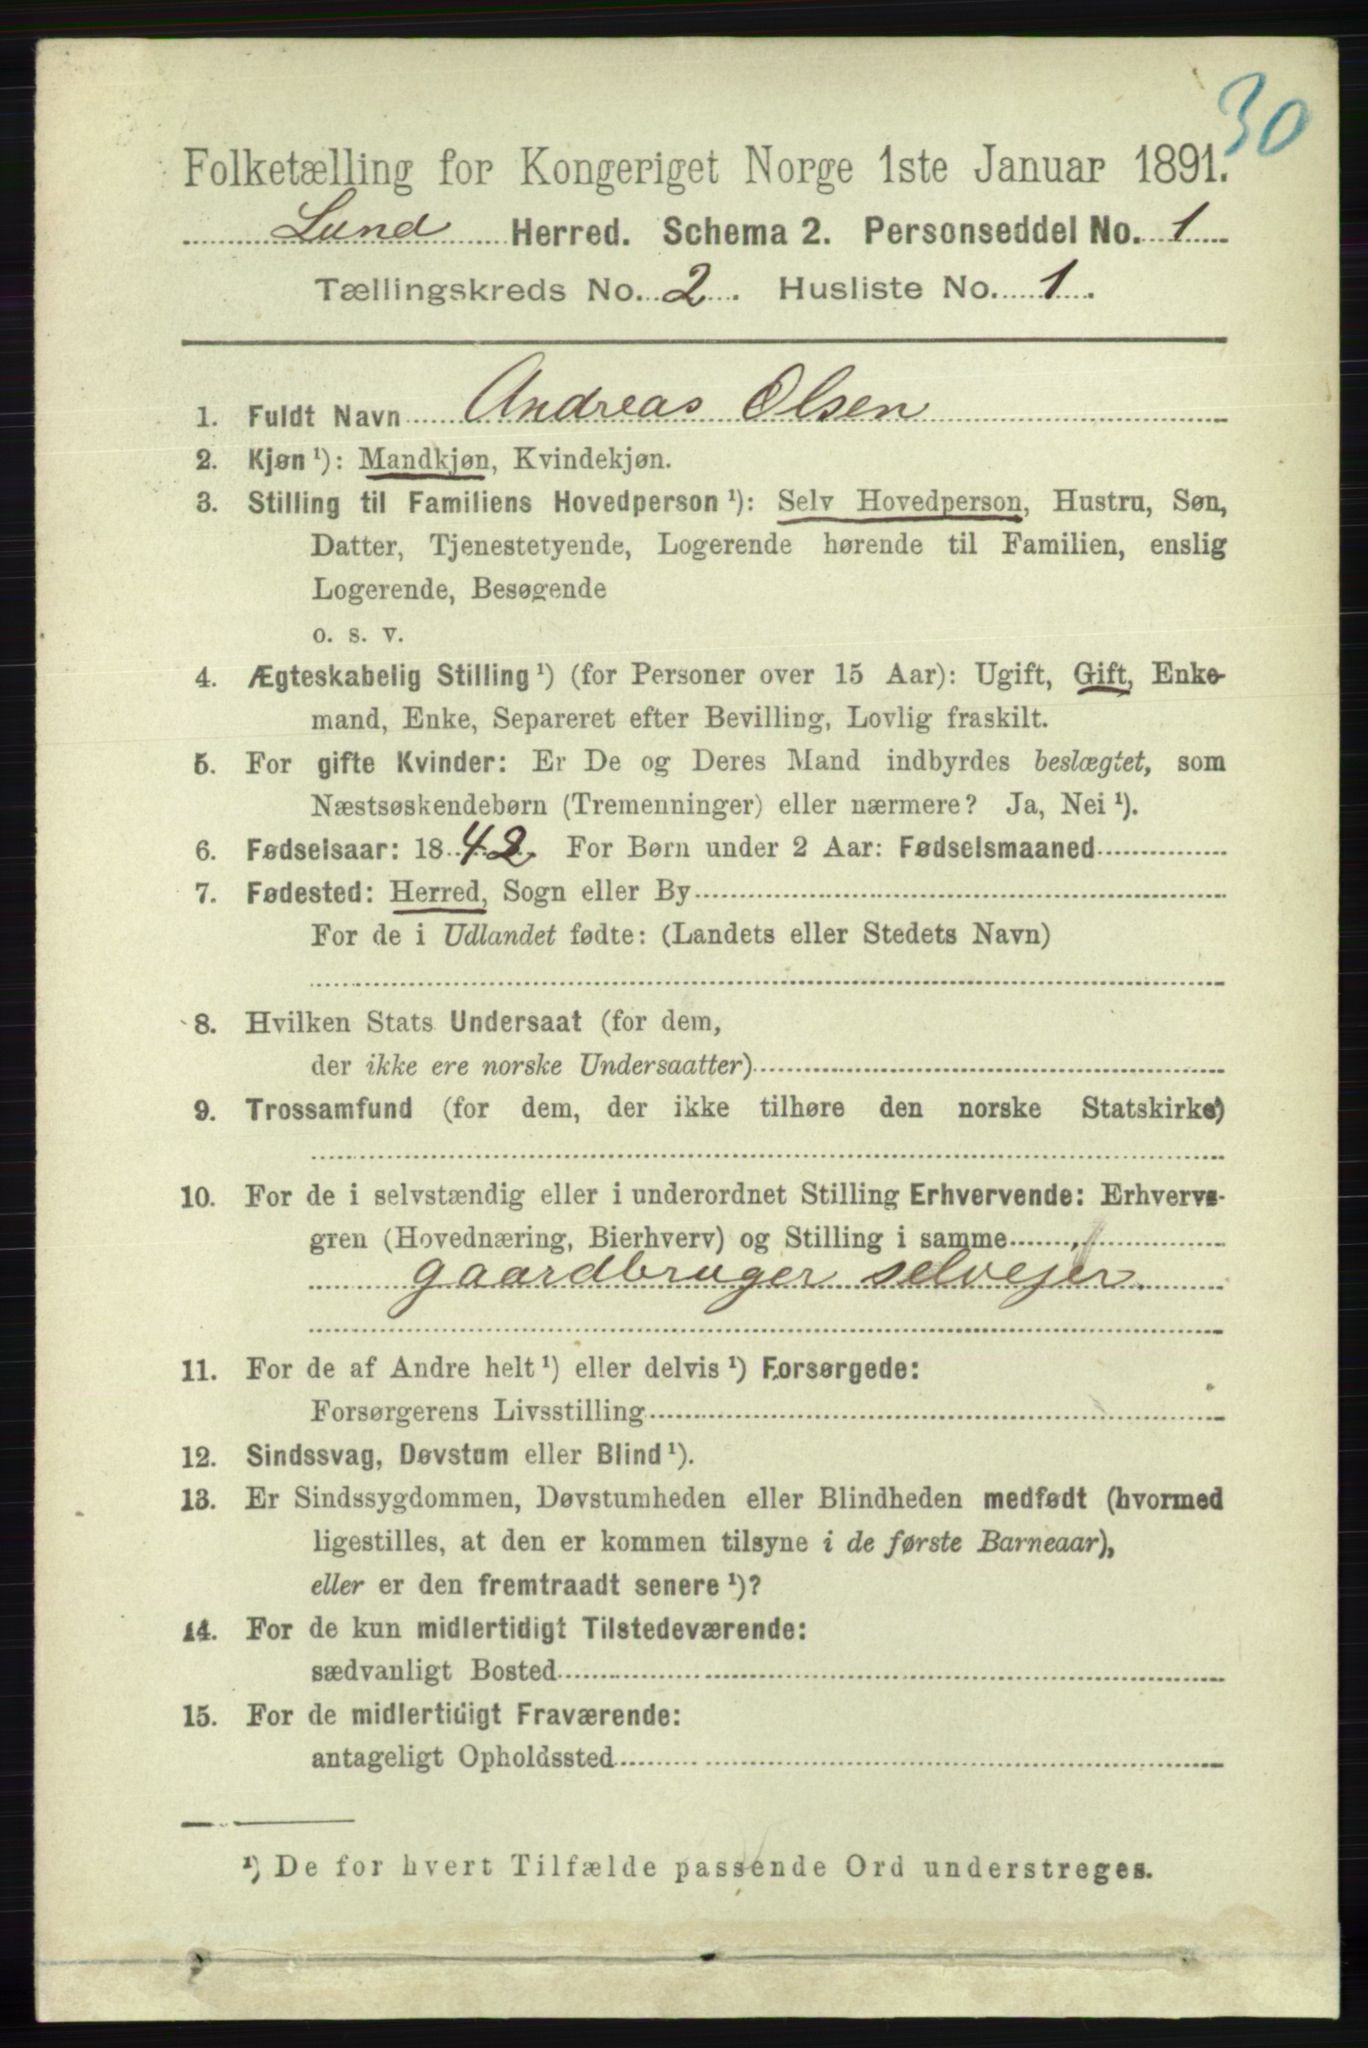 30
Folketælling for Kongeriget Norge 1ste Januar 1891.
Lund Herred. Schema 2. Personseddel No. 1
Tællingskreds No. 2. Husliste No. 1.
1. Fuldt Navn Andreas Olsen
2. Kjøn ¹): Mandkjøn, Kvindekjøn.
3. Stilling til Familiens Hovedperson ¹): Selv Hovedperson, Hustru, Søn,
Datter, Tjenestetyende, Logerende hørende til Familien, enslig
Logerende, Besøgende
o. s. v.
4. Ægteskabelig Stilling ¹) (for Personer over 15 Aar): Ugift, Gift, Enke-
mand, Enke, Separeret efter Bevilling, Lovlig fraskilt.
5. For gifte Kvinder: Er De og Deres Mand indbyrdes beslægtet, som
Næstsøskendebørn (Tremenninger) eller nærmere? Ja, Nei ¹).
6. Fødselsaar: 1842. For Børn under 2 Aar: Fødselsmaaned
7. Fødested: Herred, Sogn eller By
For de i Udlandet fødte: (Landets eller Stedets Navn)
8. Hvilken Stats Undersaat (for dem,
der ikke ere norske Undersaatter)
9. Trossamfund (for dem, der ikke tilhøre den norske Statskirke)
10. For de i selvstændig eller i underordnet Stilling Erhvervende: Erhvervs-
gren (Hovednæring, Bierhverv) og Stilling i samme
gaardbruger selvejer.
11. For de af Andre helt ¹) eller delvis ¹) Forsørgede:
Forsørgerens Livsstilling
12. Sindssvag, Døvstum eller Blind ¹).
13. Er Sindssygdommen, Døvstumheden eller Blindheden medfødt (hvormed
ligestilles, at den er kommen tilsyne i de første Barneaar),
eller er den fremtraadt senere ¹)?
14. For de kun midlertidigt Tilstedeværende:
sædvanligt Bosted
15. For de midlertidigt Fraværende:
antageligt Opholdssted
¹) De for hvert Tilfælde passende Ord understreges.